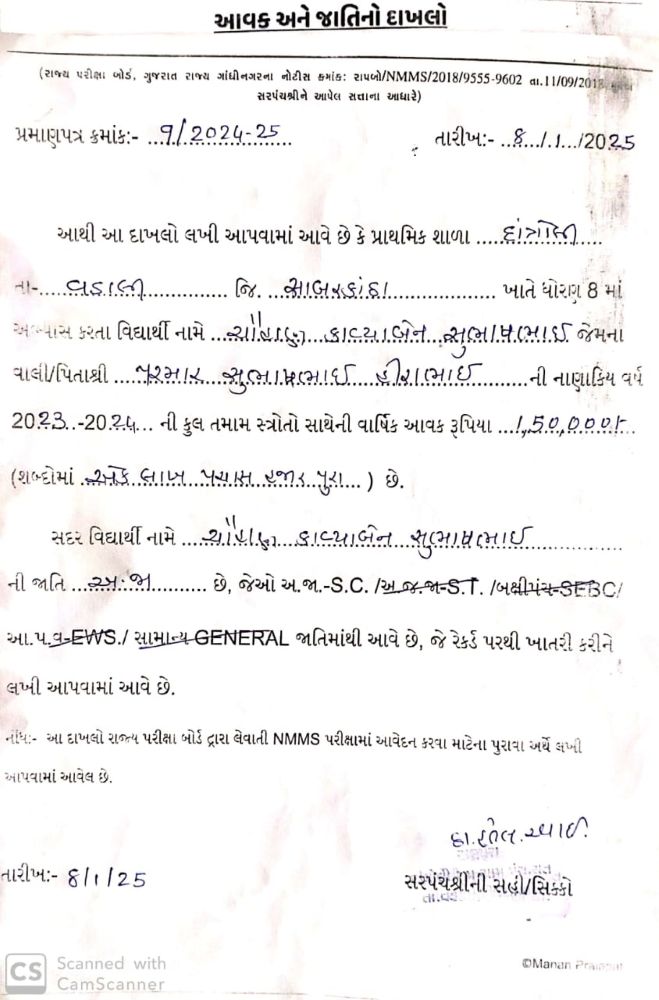 આવક અને જાતિનો દાખલો
(રાજ્ય પરીક્ષા બોર્ડ, ગુજરાત રાજ્ય ગાંધીનગરના નોટીસ ક્રમાંક: રાપબો/NMMS/2018/9555-9602 તા.11/09/2018
સરપંચશ્રીને આપેલ સત્તાના આધારે)
પ્રમાણપત્ર ક્રમાંક:- 9/2024-25 તારીખ:- 8/1/2025
આથી આ દાખલો લખી આપવામાં આવે છે કે પ્રાથમિક શાળા
તા- વડાલી જિ. સાબરકાંઠા ખાતે ધોરણ 8 માં
અભ્યાસ કરતા વિદ્યાર્થી નામે ચૌહાણ કાવ્યાબેન સુભાષભાઈ જેમના
વાલી/પિતાશ્રી પરમાર સુભાષભાઈ હીરાભાઈ ની નાણાકિય વર્ષ
2023-2024 ની કુલ તમામ સ્ત્રોતો સાથેની વાર્ષિક આવક રૂપિયા 1,50,000/-
(શબ્દોમાં એક લાખ પચાસ હજાર પુરા) છે.
સદર વિદ્યાર્થી નામે ચૌહાણ કાવ્યાબેન સુભાષભાઈ
ની જાતિ અ.જા છે, જેઓ અ.જા.-S.C. /અ.જ.જા-S.T. /બક્ષીપંચ-SEBC/
આ.પ.વ-EWS./ સામાન્ય GENERAL જાતિમાંથી આવે છે, જે રેકર્ડ પરથી ખાતરી કરીને
લખી આપવામાં આવે છે.
નોંધ:- આ દાખલો રાજ્ય પરીક્ષા બોર્ડ દ્વારા લેવાતી NMMS પરીક્ષામાં આવેદન કરવા માટેના પુરાવા અર્થે લખી
આપવામાં આવેલ છે.
તારીખ:- 8/1/25
સરપંચશ્રીની સહી/સિક્કો
©Manan Prajapat
CS Scanned with
CamScanner